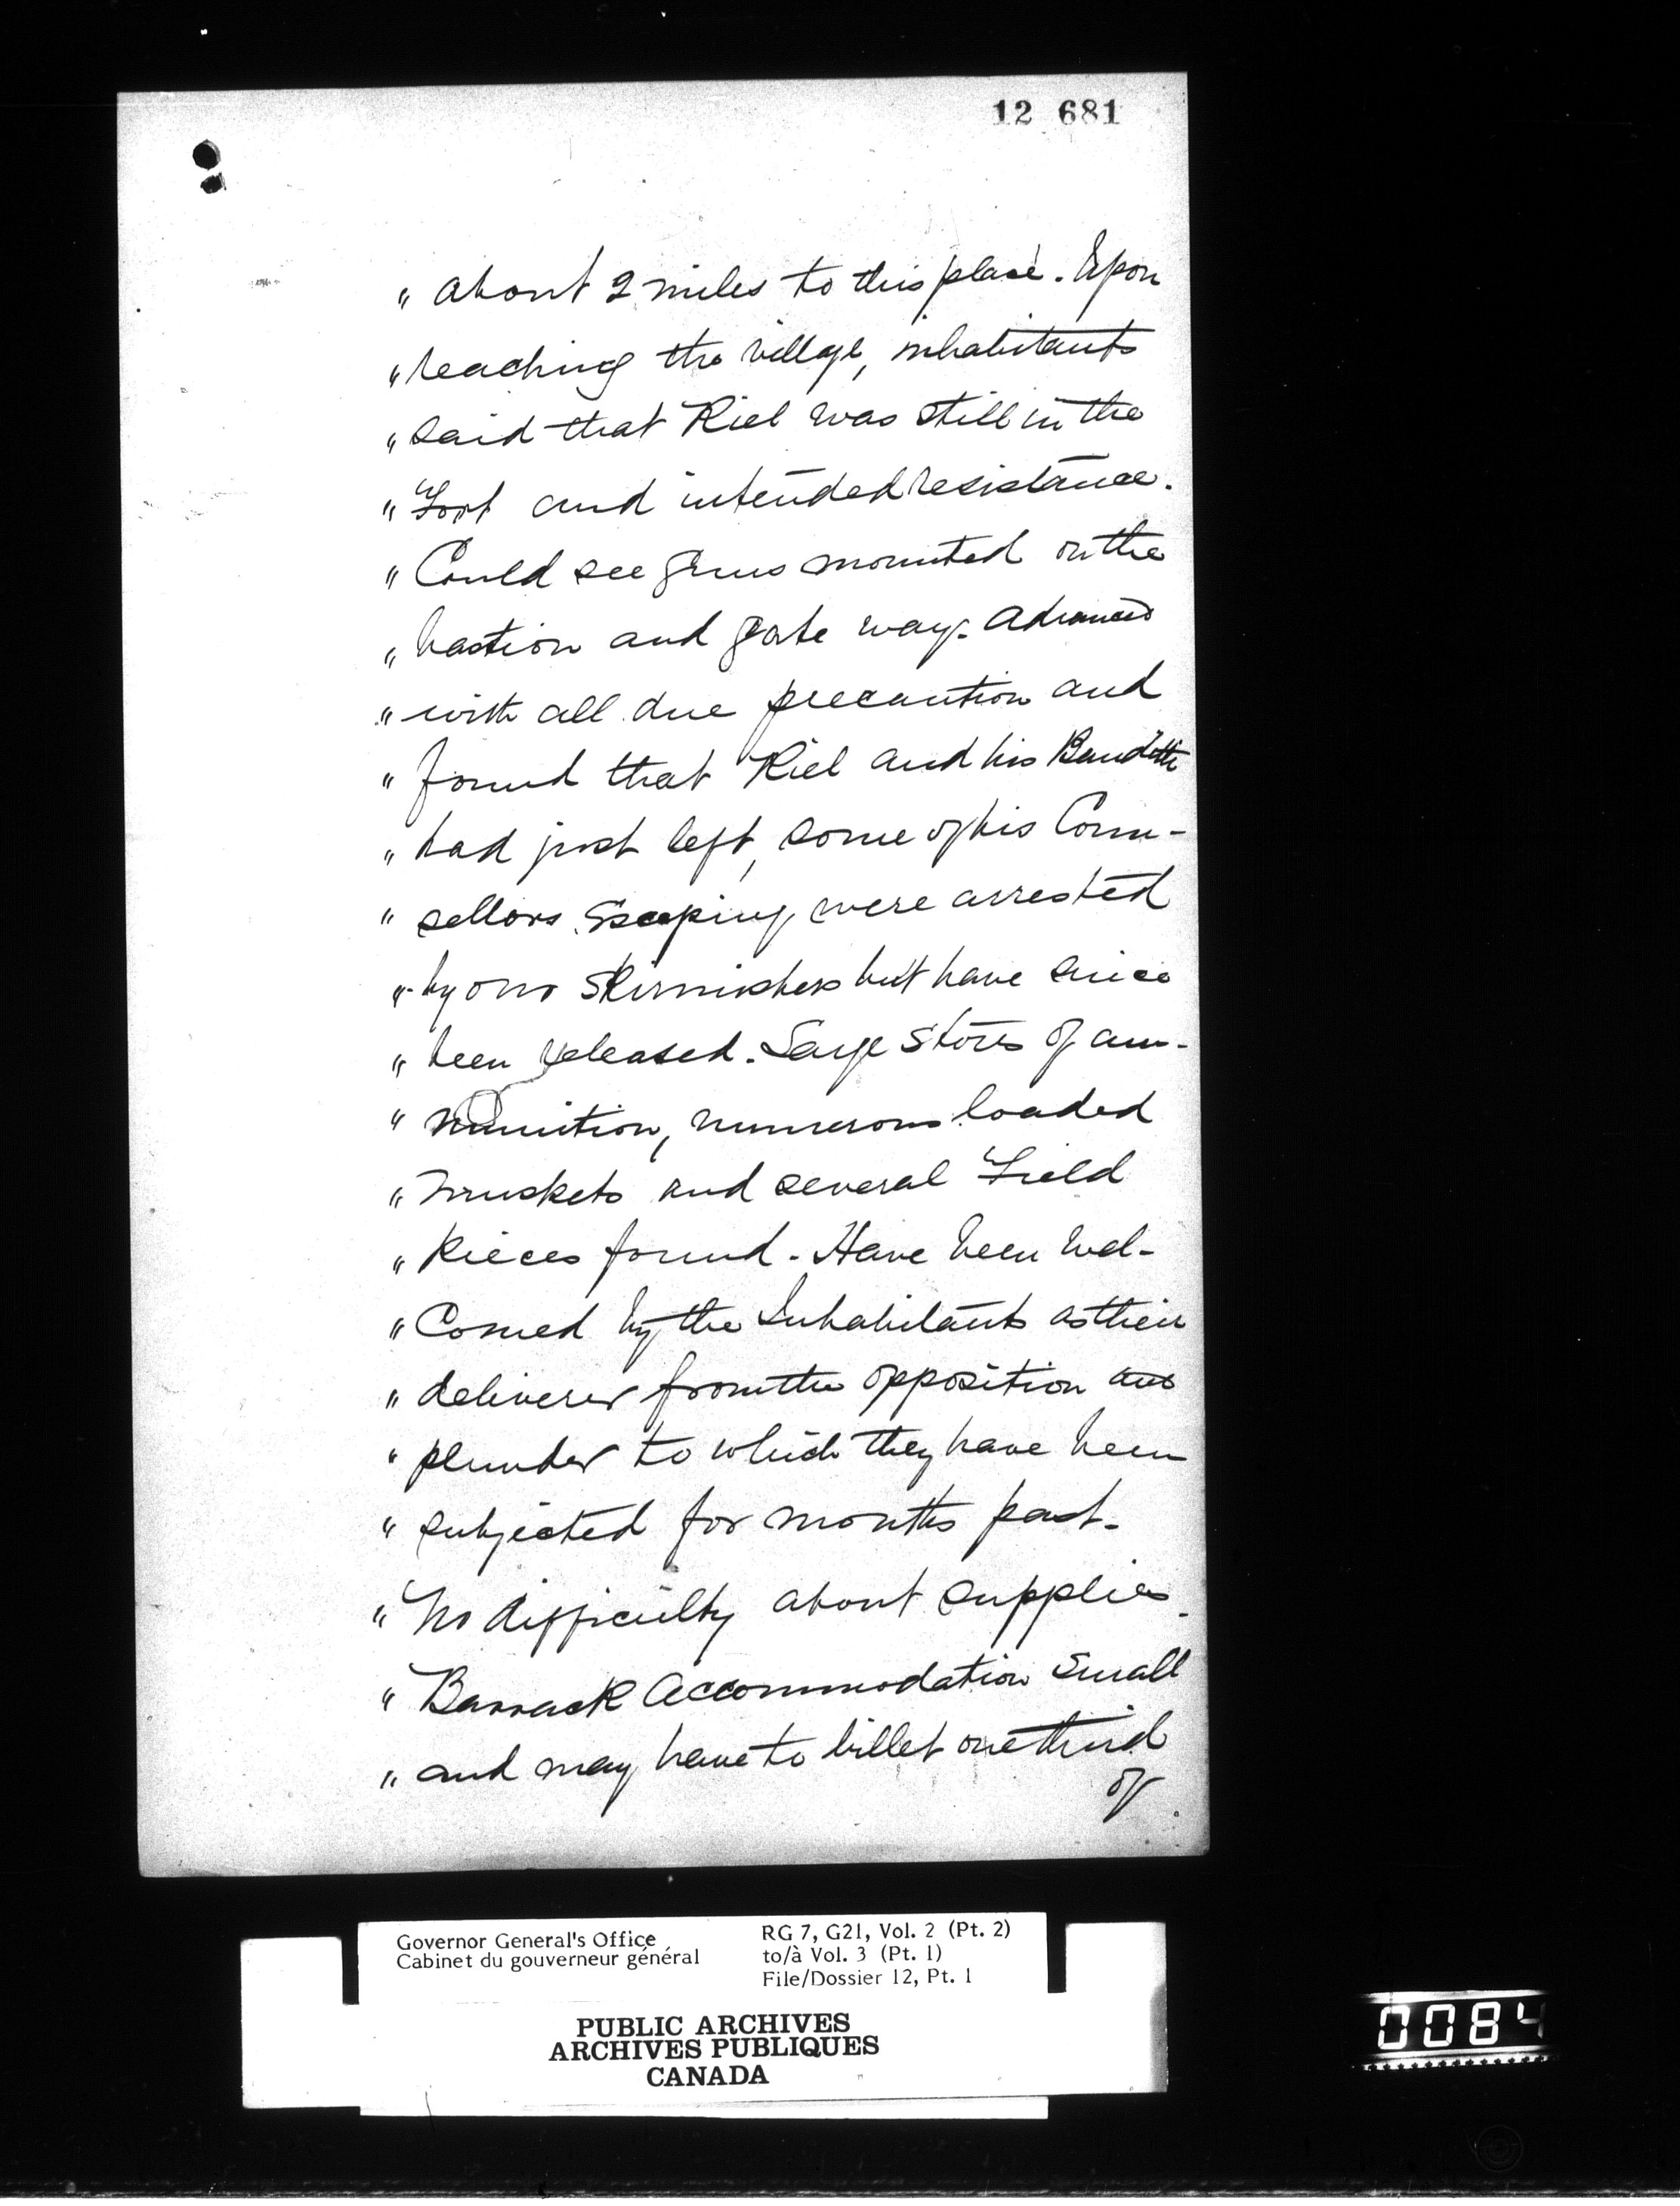 12 681
" about 2 miles to this place. Upon
" reaching the village, inhabitants
" said that Riel was still in the
" Fort and intended resistance.
" Could see guns mounted on the
" bastion and gate way. Advanced
" with all due precaution and
" found that Riel and his Banditti
" had just left, some of his Coun-
" sellors escaping, were arrested
" by our skirmishers but have since
" been released. Large stores of am-
" munition, numerous loaded
" muskets and several Field
" Pieces found. Have been wel-
" Comed by the Inhabitants as their
" deliverer from the opposition and
" plunder to which they have been
" subjected for months past.
" No difficulty about supplies.
" Barrack Accommodation small
" and may have to billet one third
of
Governor General's Office
Cabinet du gouverneur général
RG 7, G21, Vol. 2 (Pt. 2)
to/à Vol. 3 (Pt. 1)
File/Dossier 12, Pt. 1
PUBLIC ARCHIVES
ARCHIVES PUBLIQUES
CANADA
0084